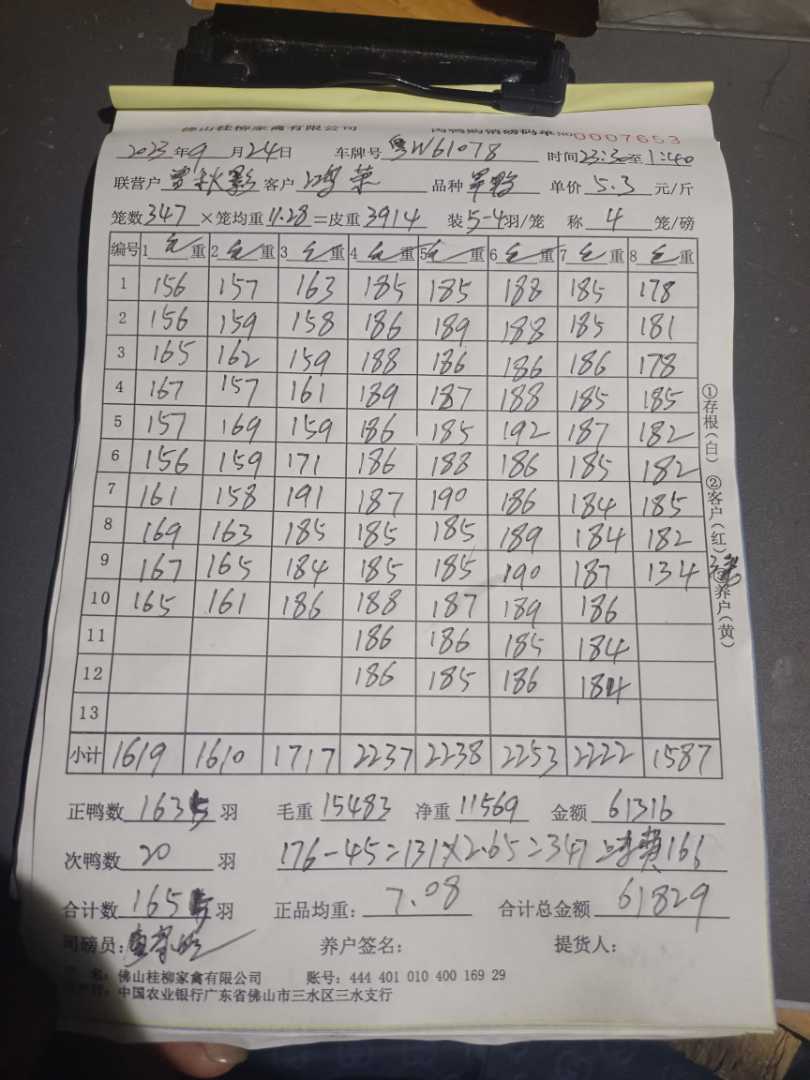 佛山桂柳家禽有限公司 0007653
2023年9月24日 车牌号 粤W61078 时间23:30至1:40
联营户 客户 鸿荣 品种 单价 5.3 元/斤
笼数347×笼均重11.28=皮重3914 装5-4羽/笼 称 4 笼/磅
编号 1 毛重 2 毛重 3 毛重 4 毛重 5 毛重 6 毛重 7 毛重 8 毛重
1 156 157 163 185 185 188 185 178
2 156 159 158 186 189 188 185 181
3 165 162 159 188 186 186 186 178
4 167 157 161 189 187 188 185 185
5 157 169 159 186 185 192 187 182
6 156 159 171 186 188 186 185 182
7 161 158 191 187 190 186 184 185
8 169 163 185 185 185 189 184 182
9 167 165 184 185 185 190 187 134
10 165 161 186 188 187 189 186
11 186 186 185 184
12 186 185 186 184
13
小计 1619 1610 1717 2237 2238 2253 2222 1587
①存根(白) ②客户(红) ③养户(黄)
正鸭数 1635 羽 毛重 15483 净重 11569 金额 61316
次鸭数 20 羽 176-45=131×2.65=347 166
合计数 1655 羽 正品均重: 7.08 合计总金额 61829
司磅员: 养户签名: 提货人:
名: 佛山桂柳家禽有限公司 账号: 444 401 010 400 169 29
中国农业银行广东省佛山市三水区三水支行